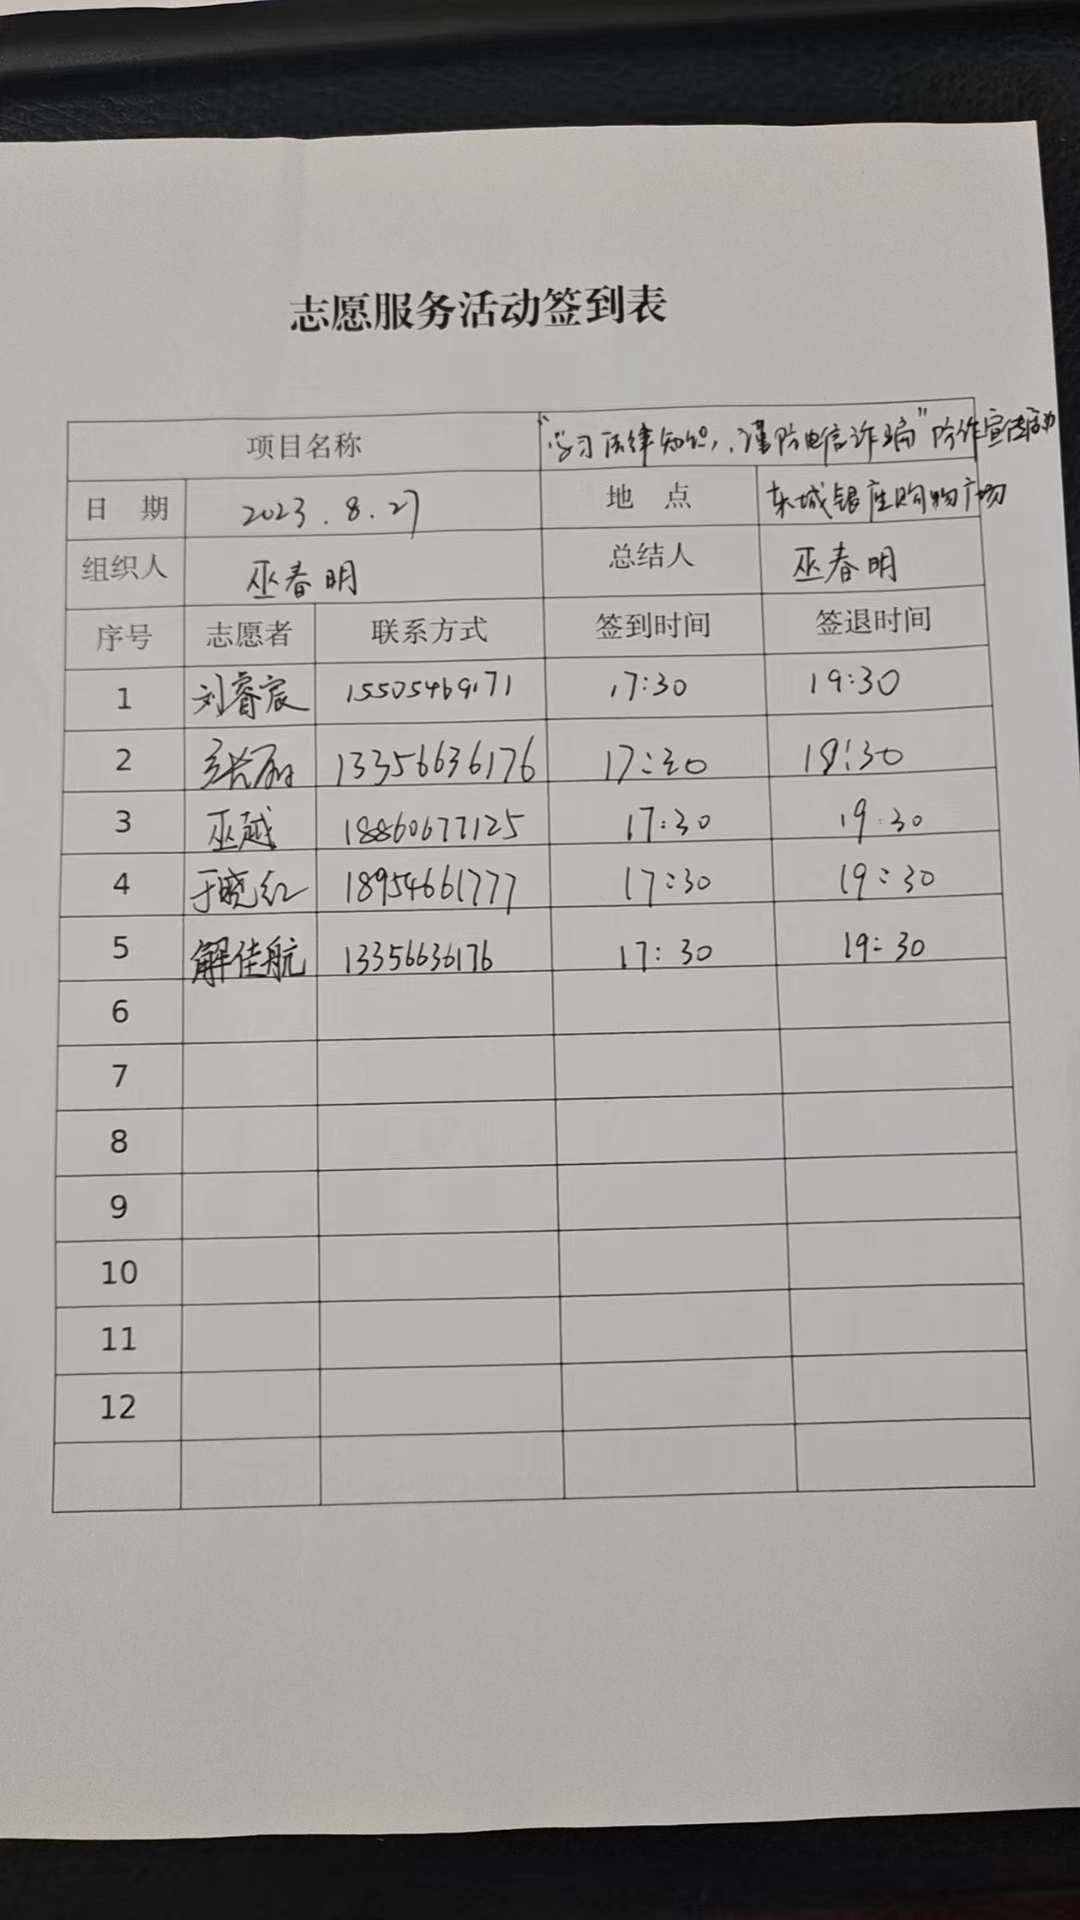 志愿服务活动签到表
项目名称 “学习法律知识，谨防电信诈骗”防诈宣传活动
日 期 2023.8.27 地 点 东城银座购物广场
组织人 巫春明 总结人 巫春明
序号 志愿者 联系方式 签到时间 签退时间
1 刘睿宸 15505469171 17:30 19:30
2 13356636176 17:30 19:30
3 巫越 18860677125 17:30 19:30
4 于晓红 18954661777 17:30 19:30
5 解佳航 13356636176 17:30 19:30
6
7
8
9
10
11
12